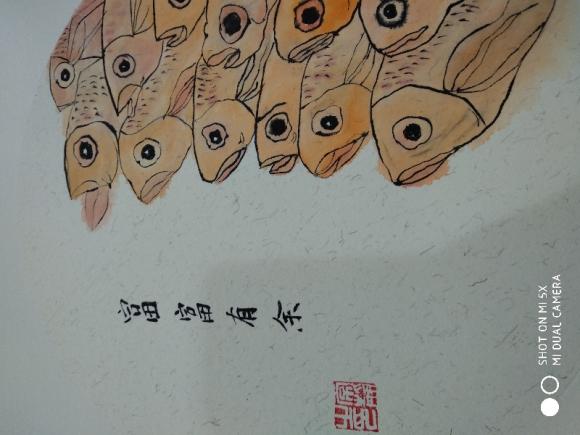 富富有余
SHOT ON MI 5X
MI DUAL CAMERA